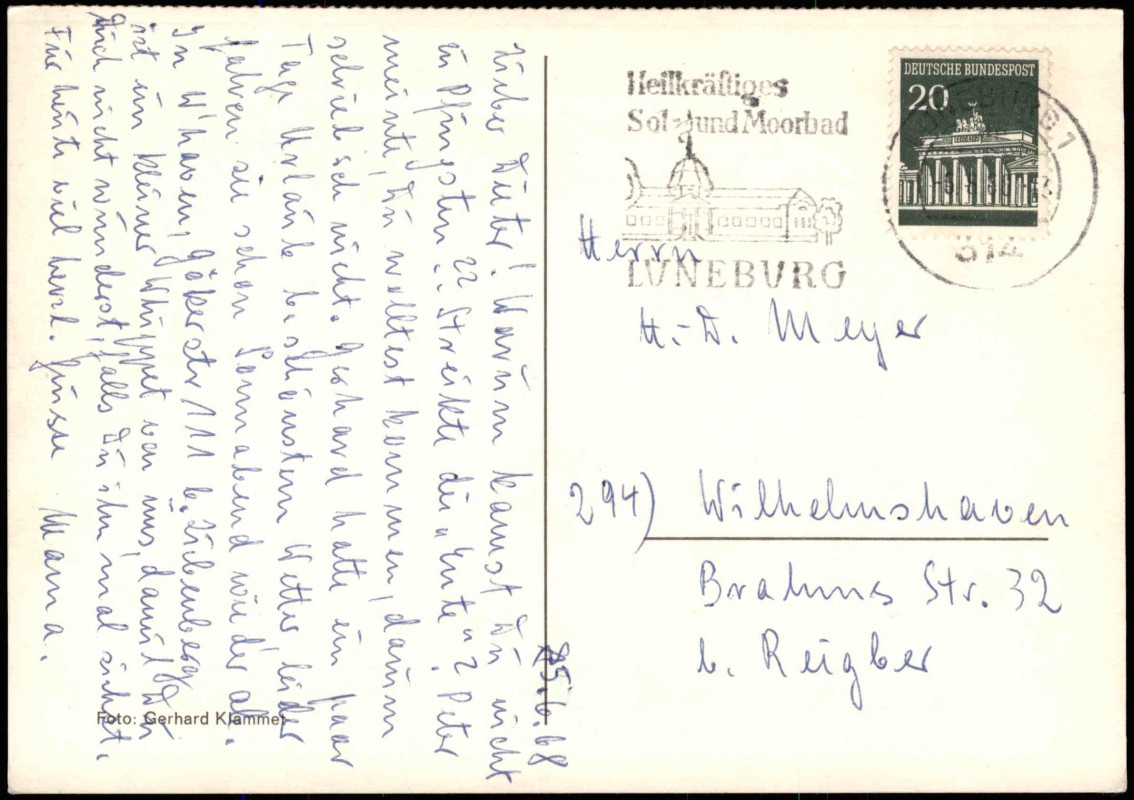 25.6.68
Lieber Dieter! Warum kamst Du nicht
zu Pfingsten?? Streikte die „Ente"? Peter
meinte, Du wolltest kommen, darum
schrieb ich nicht. Gerhard hatte ein paar
Tage Urlaub b. schönstem Wetter, leider
fahren sie schon Sonnabend wieder ab.
In W'haven, Gökerstr 111 b. Liebenberg
ist ein kleiner Whippet von uns, damit Du
Dich nicht wunderst, falls Du ihn mal siehst.
Für heute viel herzl. Grüsse Mama.
Foto: Gerhard Klammet
Heilkräftiges
Sol- und Moorbad
LÜNEBURG
DEUTSCHE BUNDESPOST
20
LÜNEBURG 1
314
Herrn
H.-D. Meyer
294) Wilhelmshaven
Brahms Str. 32
b. Reigber